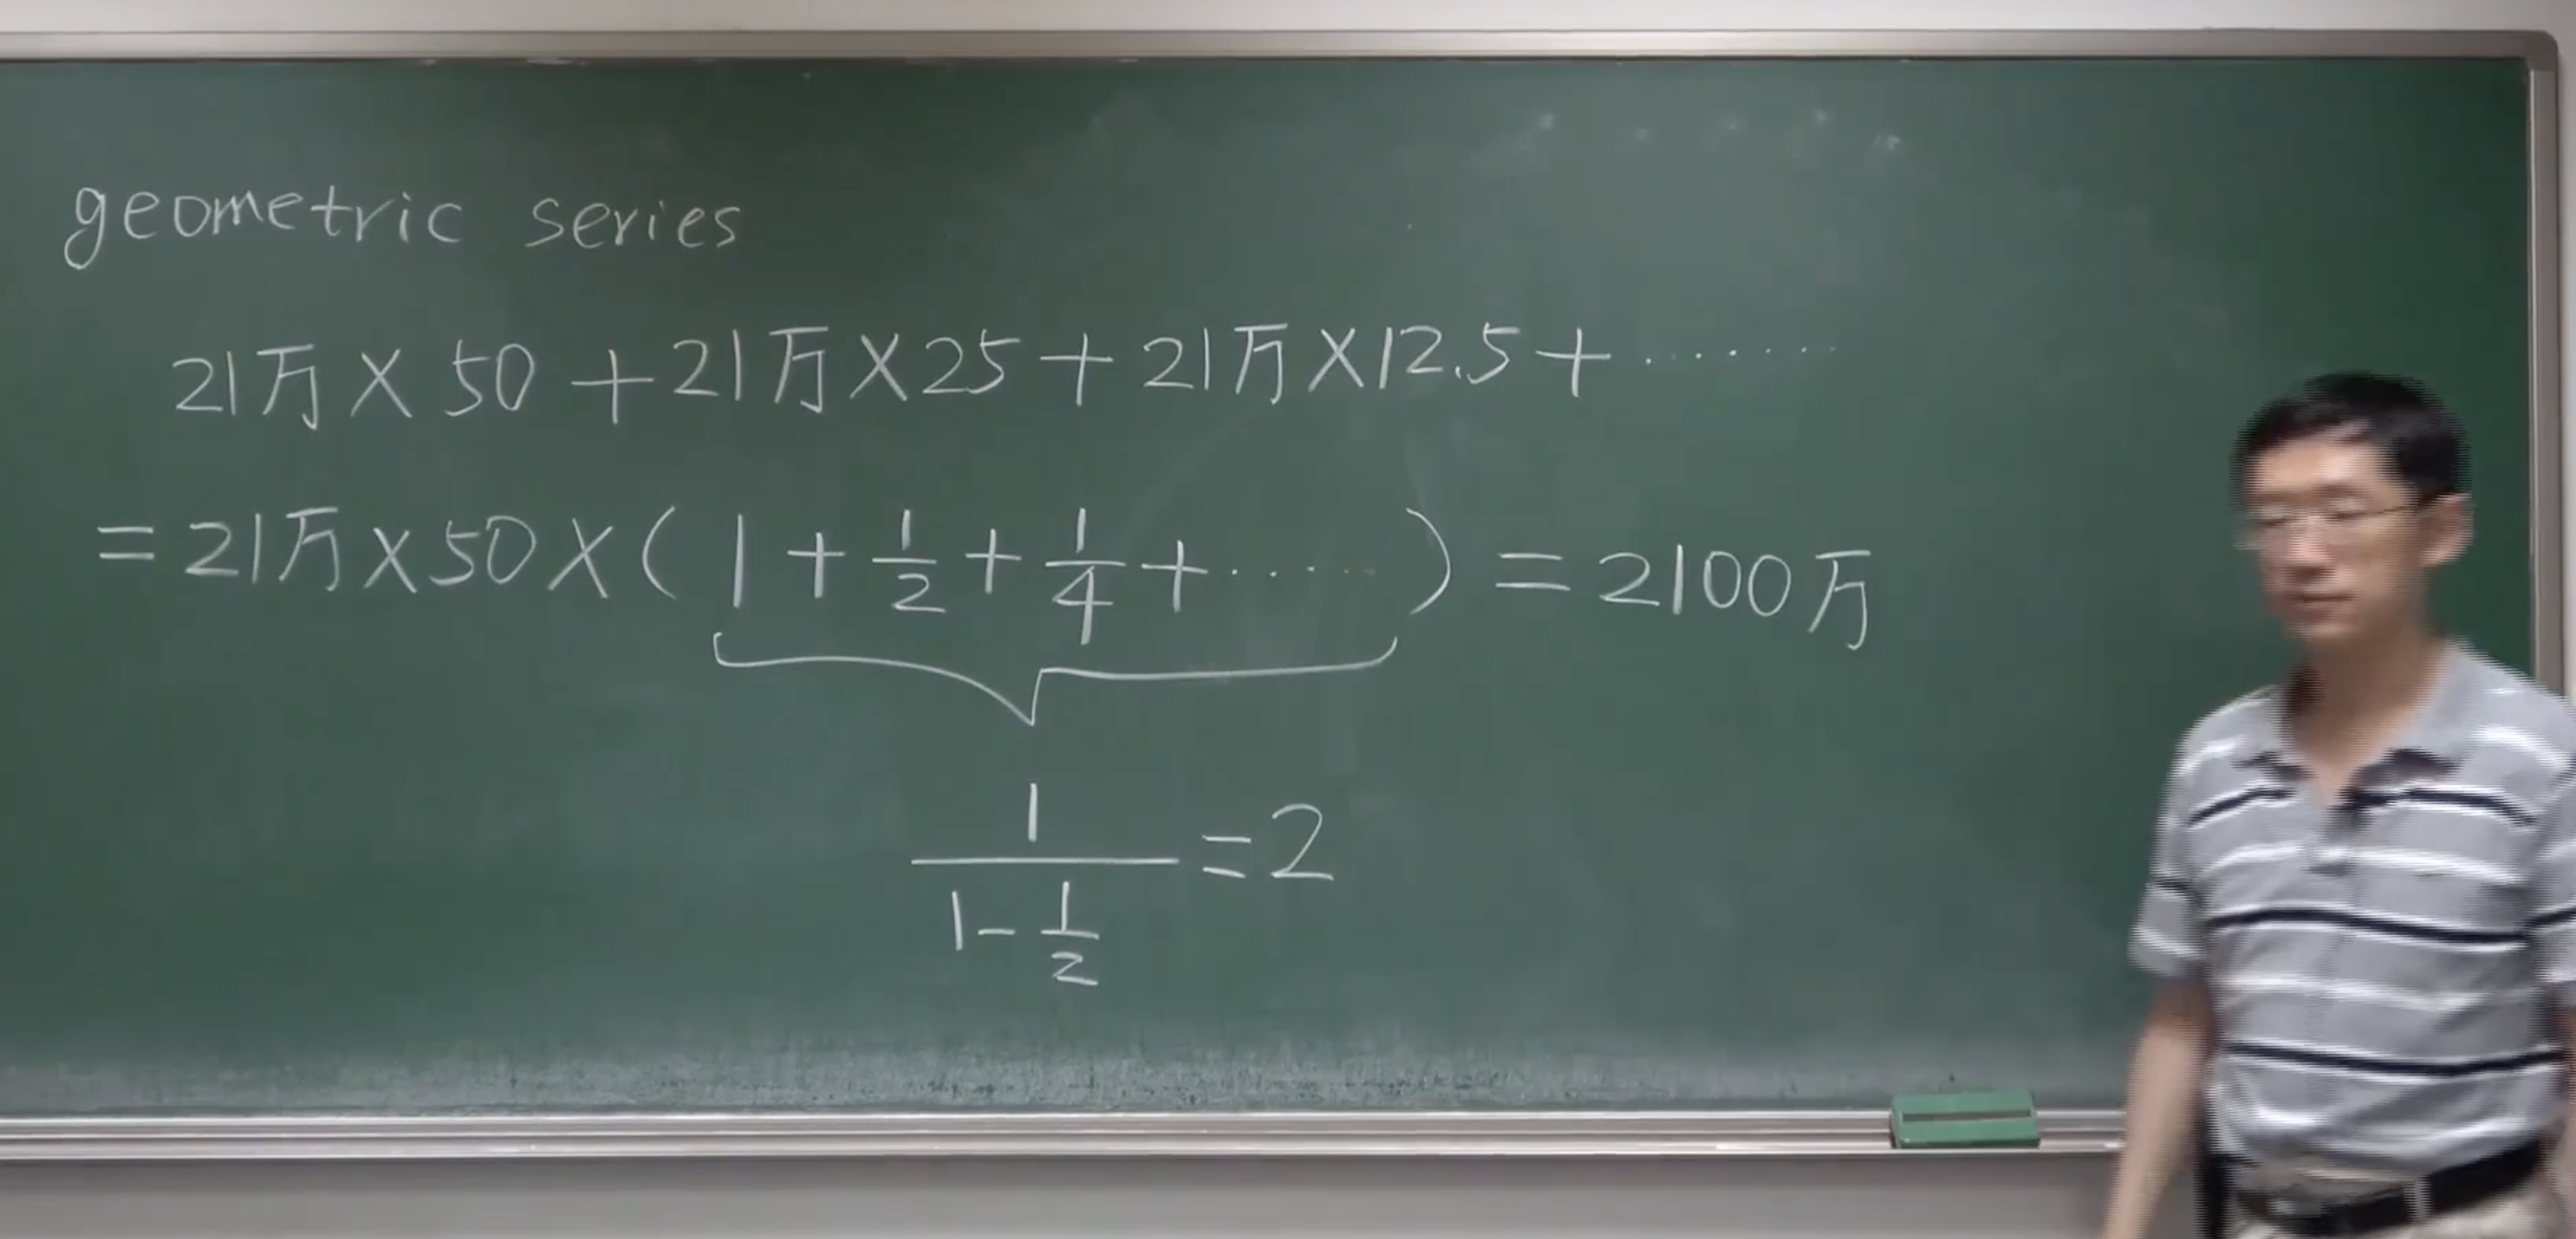 geometric series
21万×50+21万×25+21万×12.5+········
=21万×50×(1+1/2+1/4+······)=2100万
1/(1-1/2)=2